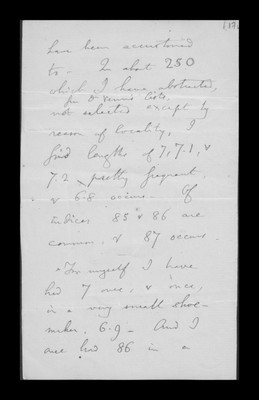 (17.
have been accustomed
to. In about 250
which I have abstracted,
for Dr lists,
not selected except by
reason of locality, I
find lengths of 7, 7.1, &
7.2 pretty frequent,
& 6.8 occurs. Of
Indices 85 & 86 are
common, & 87 occurs.
"For myself I have
had 7 once, & once,
in a very small shoe-
maker, 6.9 - And I
once had 86 in a